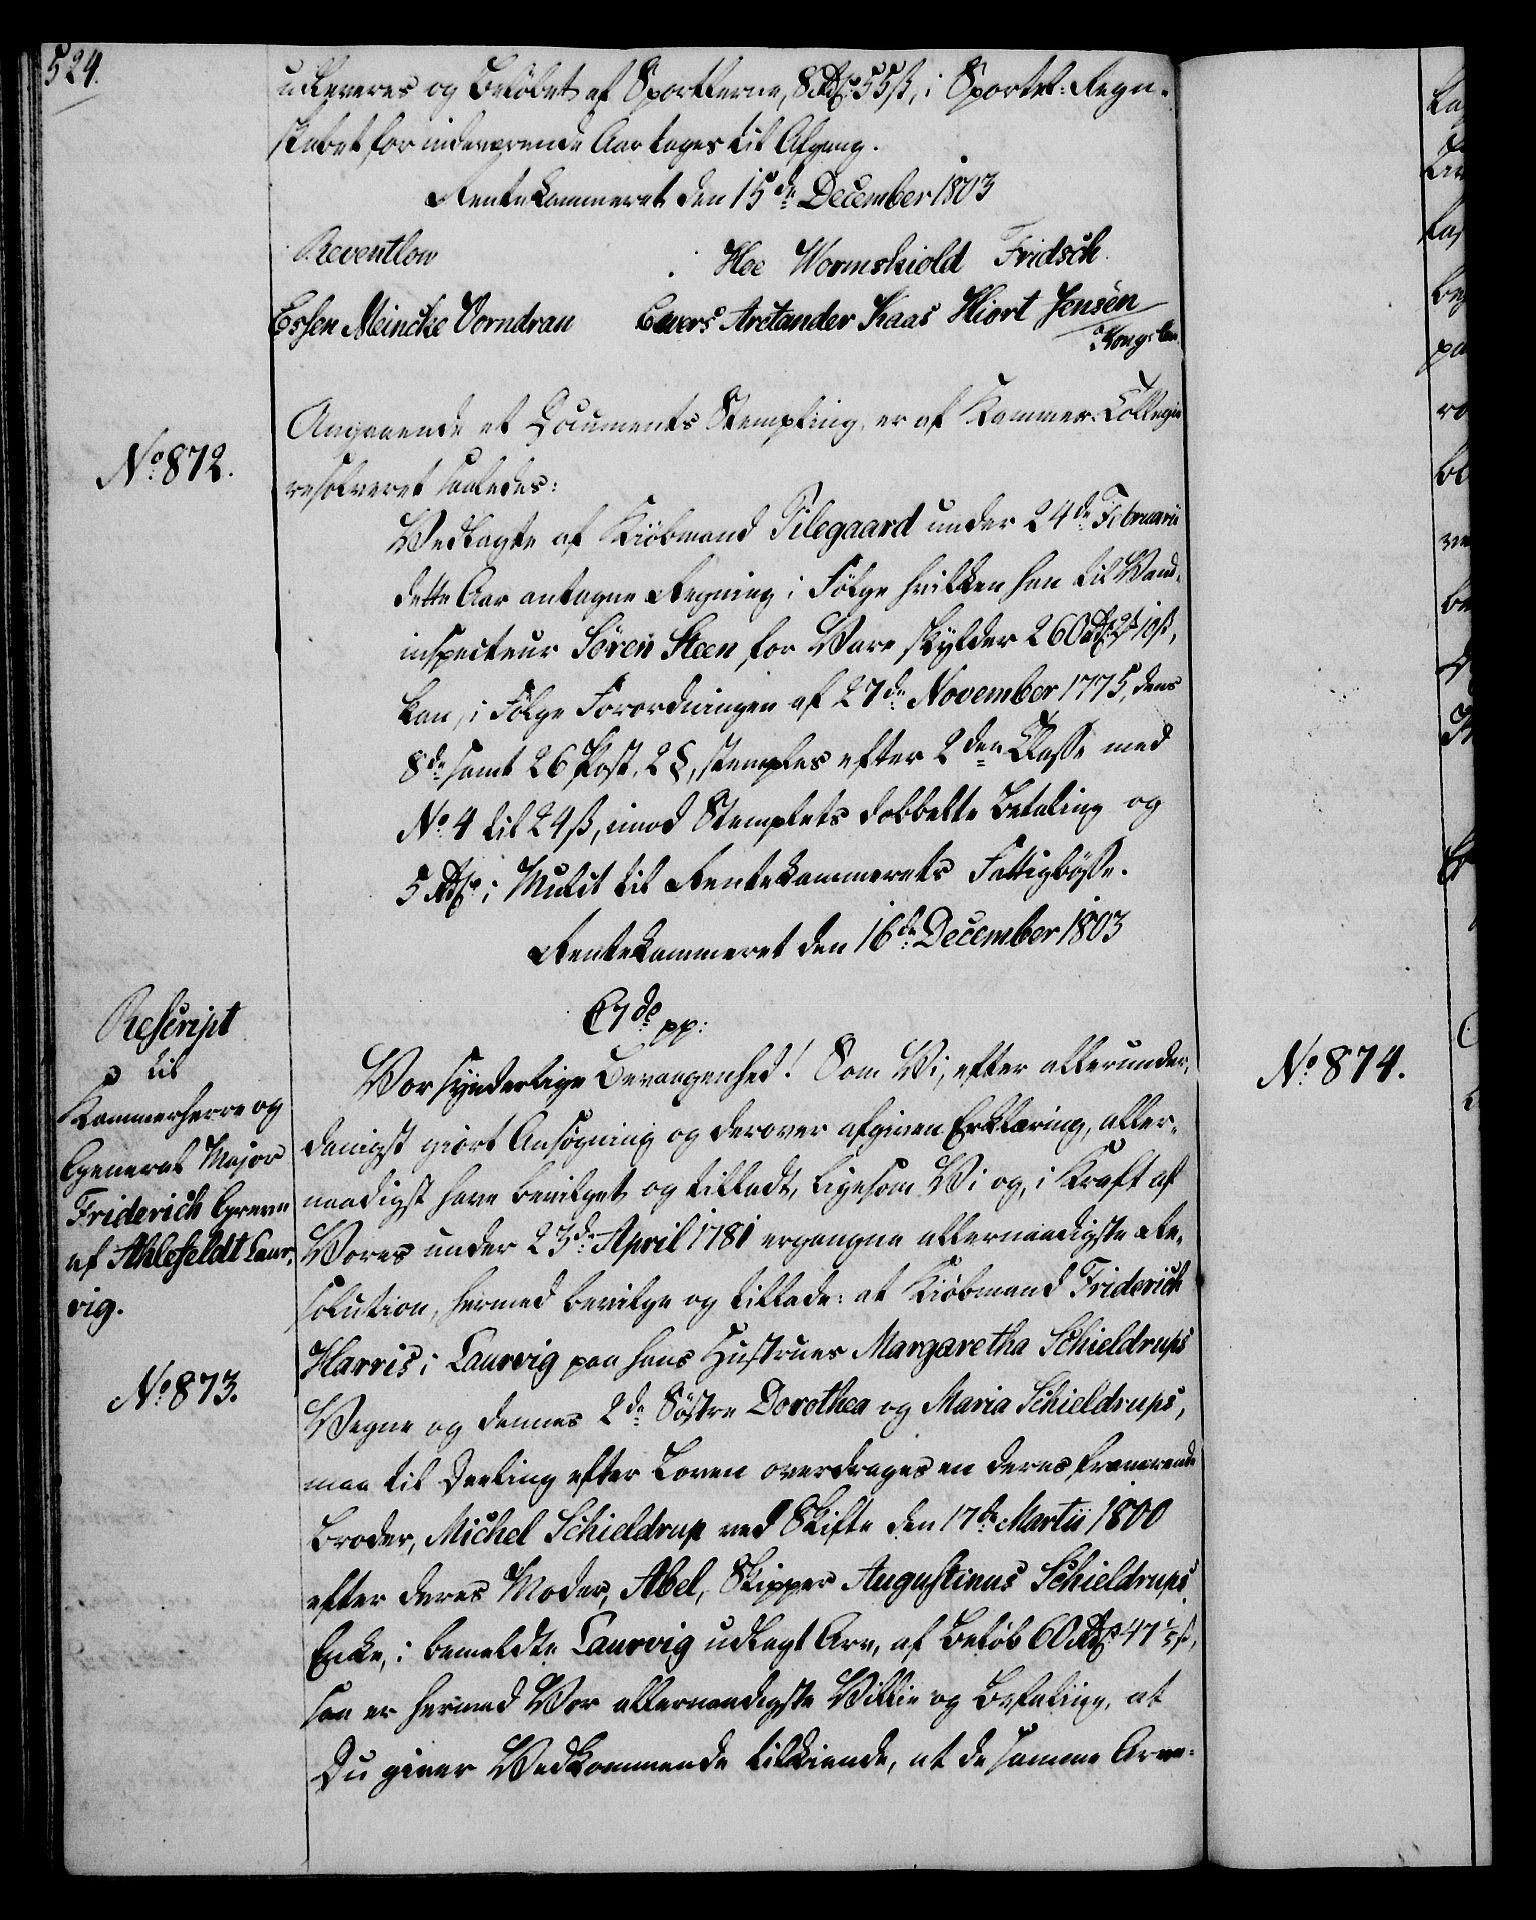 524.
udleveres og Beløbet af Sportlerne, 8 Rdr 55 ß, i Sportel-Regn-
skabet for indeværende Aar tages til Afgang.
Rentekammeret den 15de December 1803
Reventlow
Hoe Wormskiold Fridsch.
Essen Meincke Vorndran Ewers Arctander Kaas Hiort Jensen
No 872.
Angaaende et Documents Stempling, er af Kammer-Collegie
resolveret saaledes:
Vedlagte af Kiöbmand Pilegaard under 24de Februarii
dette Aar antagne Regning i Følge hvilken han til Vand-
inspecteur Sören Steen for Vare skylder 260 Rdr 2 10 ß,
kan, i Følge Forordningen af 27de November 1775, dens
8de samt 26 Post, 2 §, stemples efter 2den Classe med
No 4 til 24 ß, imod Stemplets dobbelte Betaling og
5 Rdr i Mulct til Rentekammerets Fattigbøsse.
Rentekammeret den 16de December 1803
Rescript
til
Kammerherre og
General Major
Friderich Greve
af Ahlefeldt Laur-
vig.
No 873.
C7de pp:
Vor synderlige Bevaagenhed! Som Vi, efter allerunder-
danigst giort Ansøgning og derover afgiven Erklæring, aller-
naadigst have bevilget og tilladt, ligesom Vi og, i Kraft af
Vores under 23de April 1781 ergangne allernaadigste Re-
solution, hermed bevilge og tillade: at Kiöbmand Friderich
Harris i Laurvig paa hans Hustrues Margaretha Schieldrups
Vegne og dennes 2de Søstre Dorothea og Maria Schieldrups,
maa til Deeling efter Loven overdrages en deres fraværende
Broder, Michel Schieldrup ved Skifte den 17de Martii 1800
efter deres Moder, Abel, Skipper Augustinus Schieldrups
Enke, i bemeldte Laurvig udlagt Arv, af Beløb 60 Rdr 47 1/5 ß,
saa er hermed Vor allernaadigste Villie og Befaling, at
Du giver Vedkommende tilkiende, at de samme Arve-
No 874.